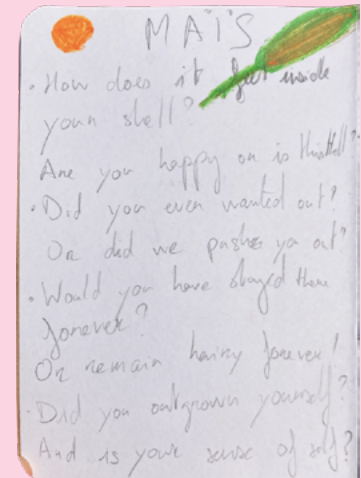 MAÏS
• How does it feel inside
your shell?
Are you happy or is this Hell?
• Did you even wanted out?
Or did we pushes you out?
• Would you have stayed there
forever?
Or remain hairy forever!
• Did you outgrown yourself?
And is your sense of self?